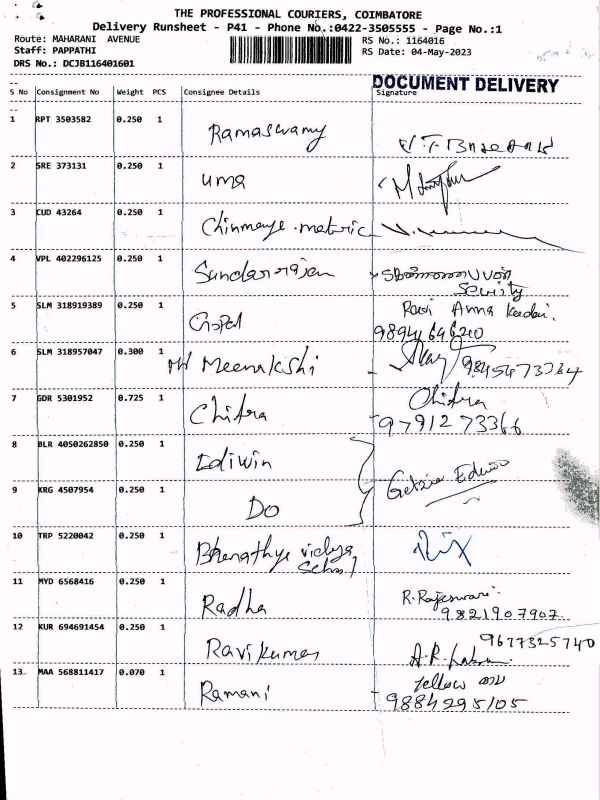 THE PROFESSIONAL COURIERS, COIMBATORE
Delivery Runsheet - P41 - Phone No.:0422-3505555 - Page No.:1
Route: MAHARANI AVENUE RS No.: 1164016
Staff: PAPPATHI RS Date: 04-May-2023
DRS No.: DCJB116401601
DOCUMENT DELIVERY
S No Consignment No Weight PCS Consignee Details Signature
1 RPT 3503582 0.250 1 Ramaswamy
2 SRE 373131 0.250 1 uma
3 CUD 43264 0.250 1 Chinmaye.matric
4 VPL 402296125 0.250 1 Sundarrajan
5 SLM 318919389 0.250 1 Gopal
6 SLM 318957047 0.300 1 Meenakshi
7 GDR 5301952 0.725 1 Chitra Chitra
97912 73366
8 BLR 4050262850 0.250 1 Ediwin
9 KRG 4507954 0.250 1 Do
10 TRP 5220042 0.250 1 Bharathye vidya
11 MYD 6568416 0.250 1 Radha R. Rajeswari
9821907907
12 KUR 694691454 0.250 1 Ravikumar 9677325740
13. MAA 568811417 0.070 1 Ramani
9884295105